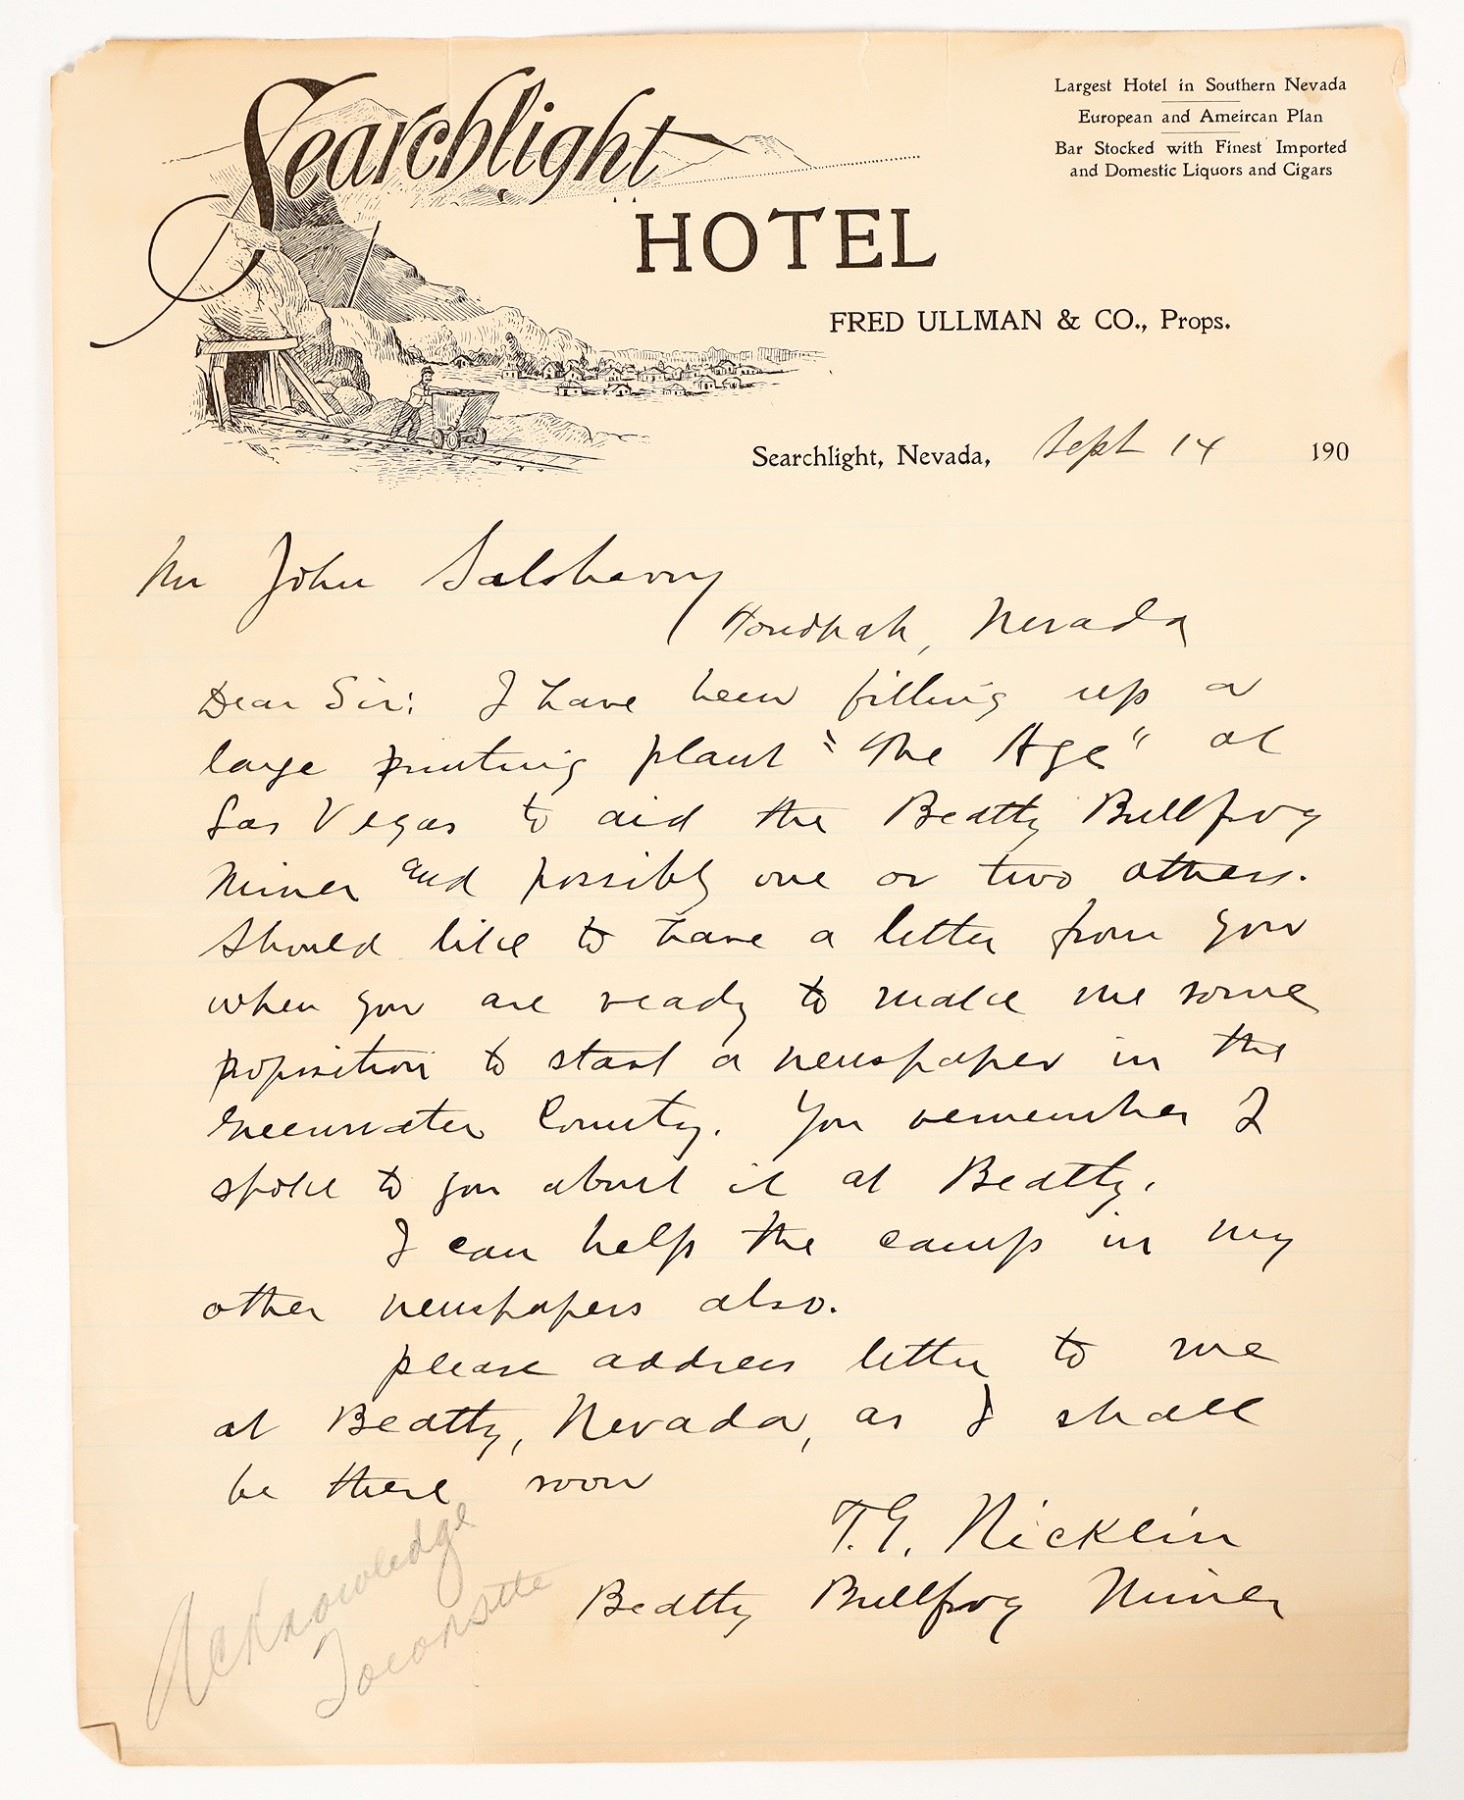 Searchlight
HOTEL
FRED ULLMAN & CO., Props.
Largest Hotel in Southern Nevada
European and Ameircan Plan
Bar Stocked with Finest Imported
and Domestic Liquors and Cigars
Searchlight, Nevada, Sept 14 190
Mr John Salsberry
Tonopah, Nevada
Dear Sir: I have been filling up a
large printing plant "The Age" at
Las Vegas to aid the Beatty Bullfrog
Miner and possibly one or two others.
Should like to have a letter from you
when you are ready to make me some
proposition to start a newspaper in the
Greenwater Country. You remember I
spoke to you about it at Beatty.
I can help the camp in my
other newspapers also.
please address letter to me
at Beatty, Nevada, as I shall
be there soon
T.G. Nicklin
Beatty Bullfrog Miner
Acknowledge